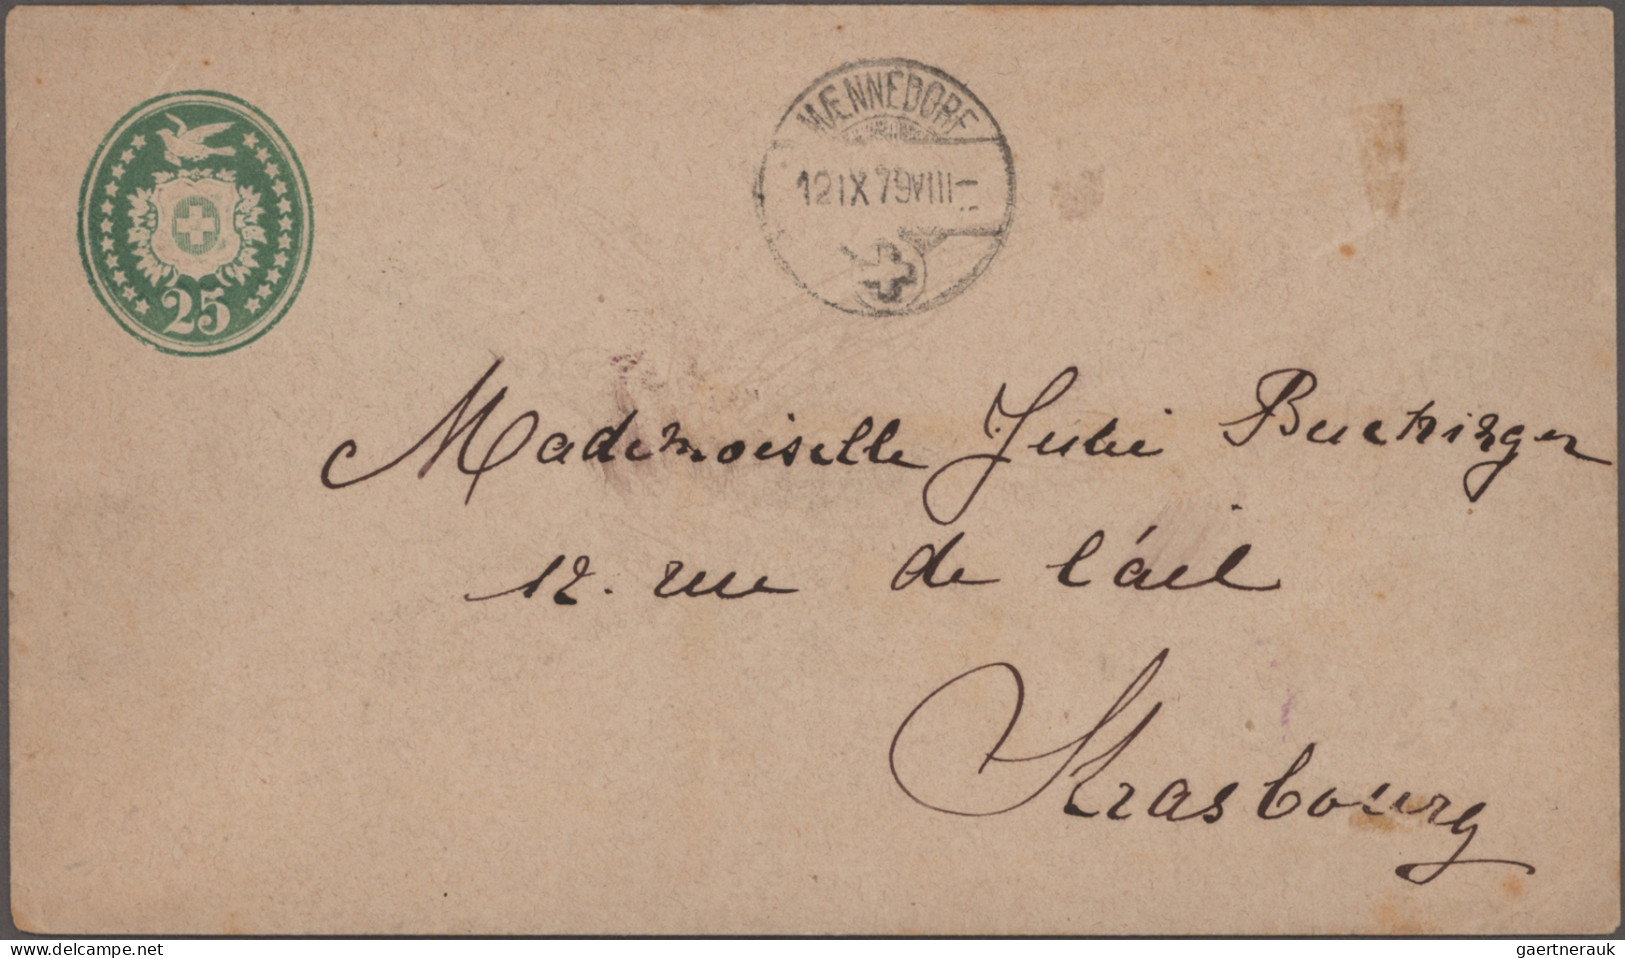 MÆNNEDORF
12 IX 79 VIII
25
Mademoiselle Julie Buchinger
12. rue de l'ail
Strasbourg
www.delcampe.net
gaertnerauk